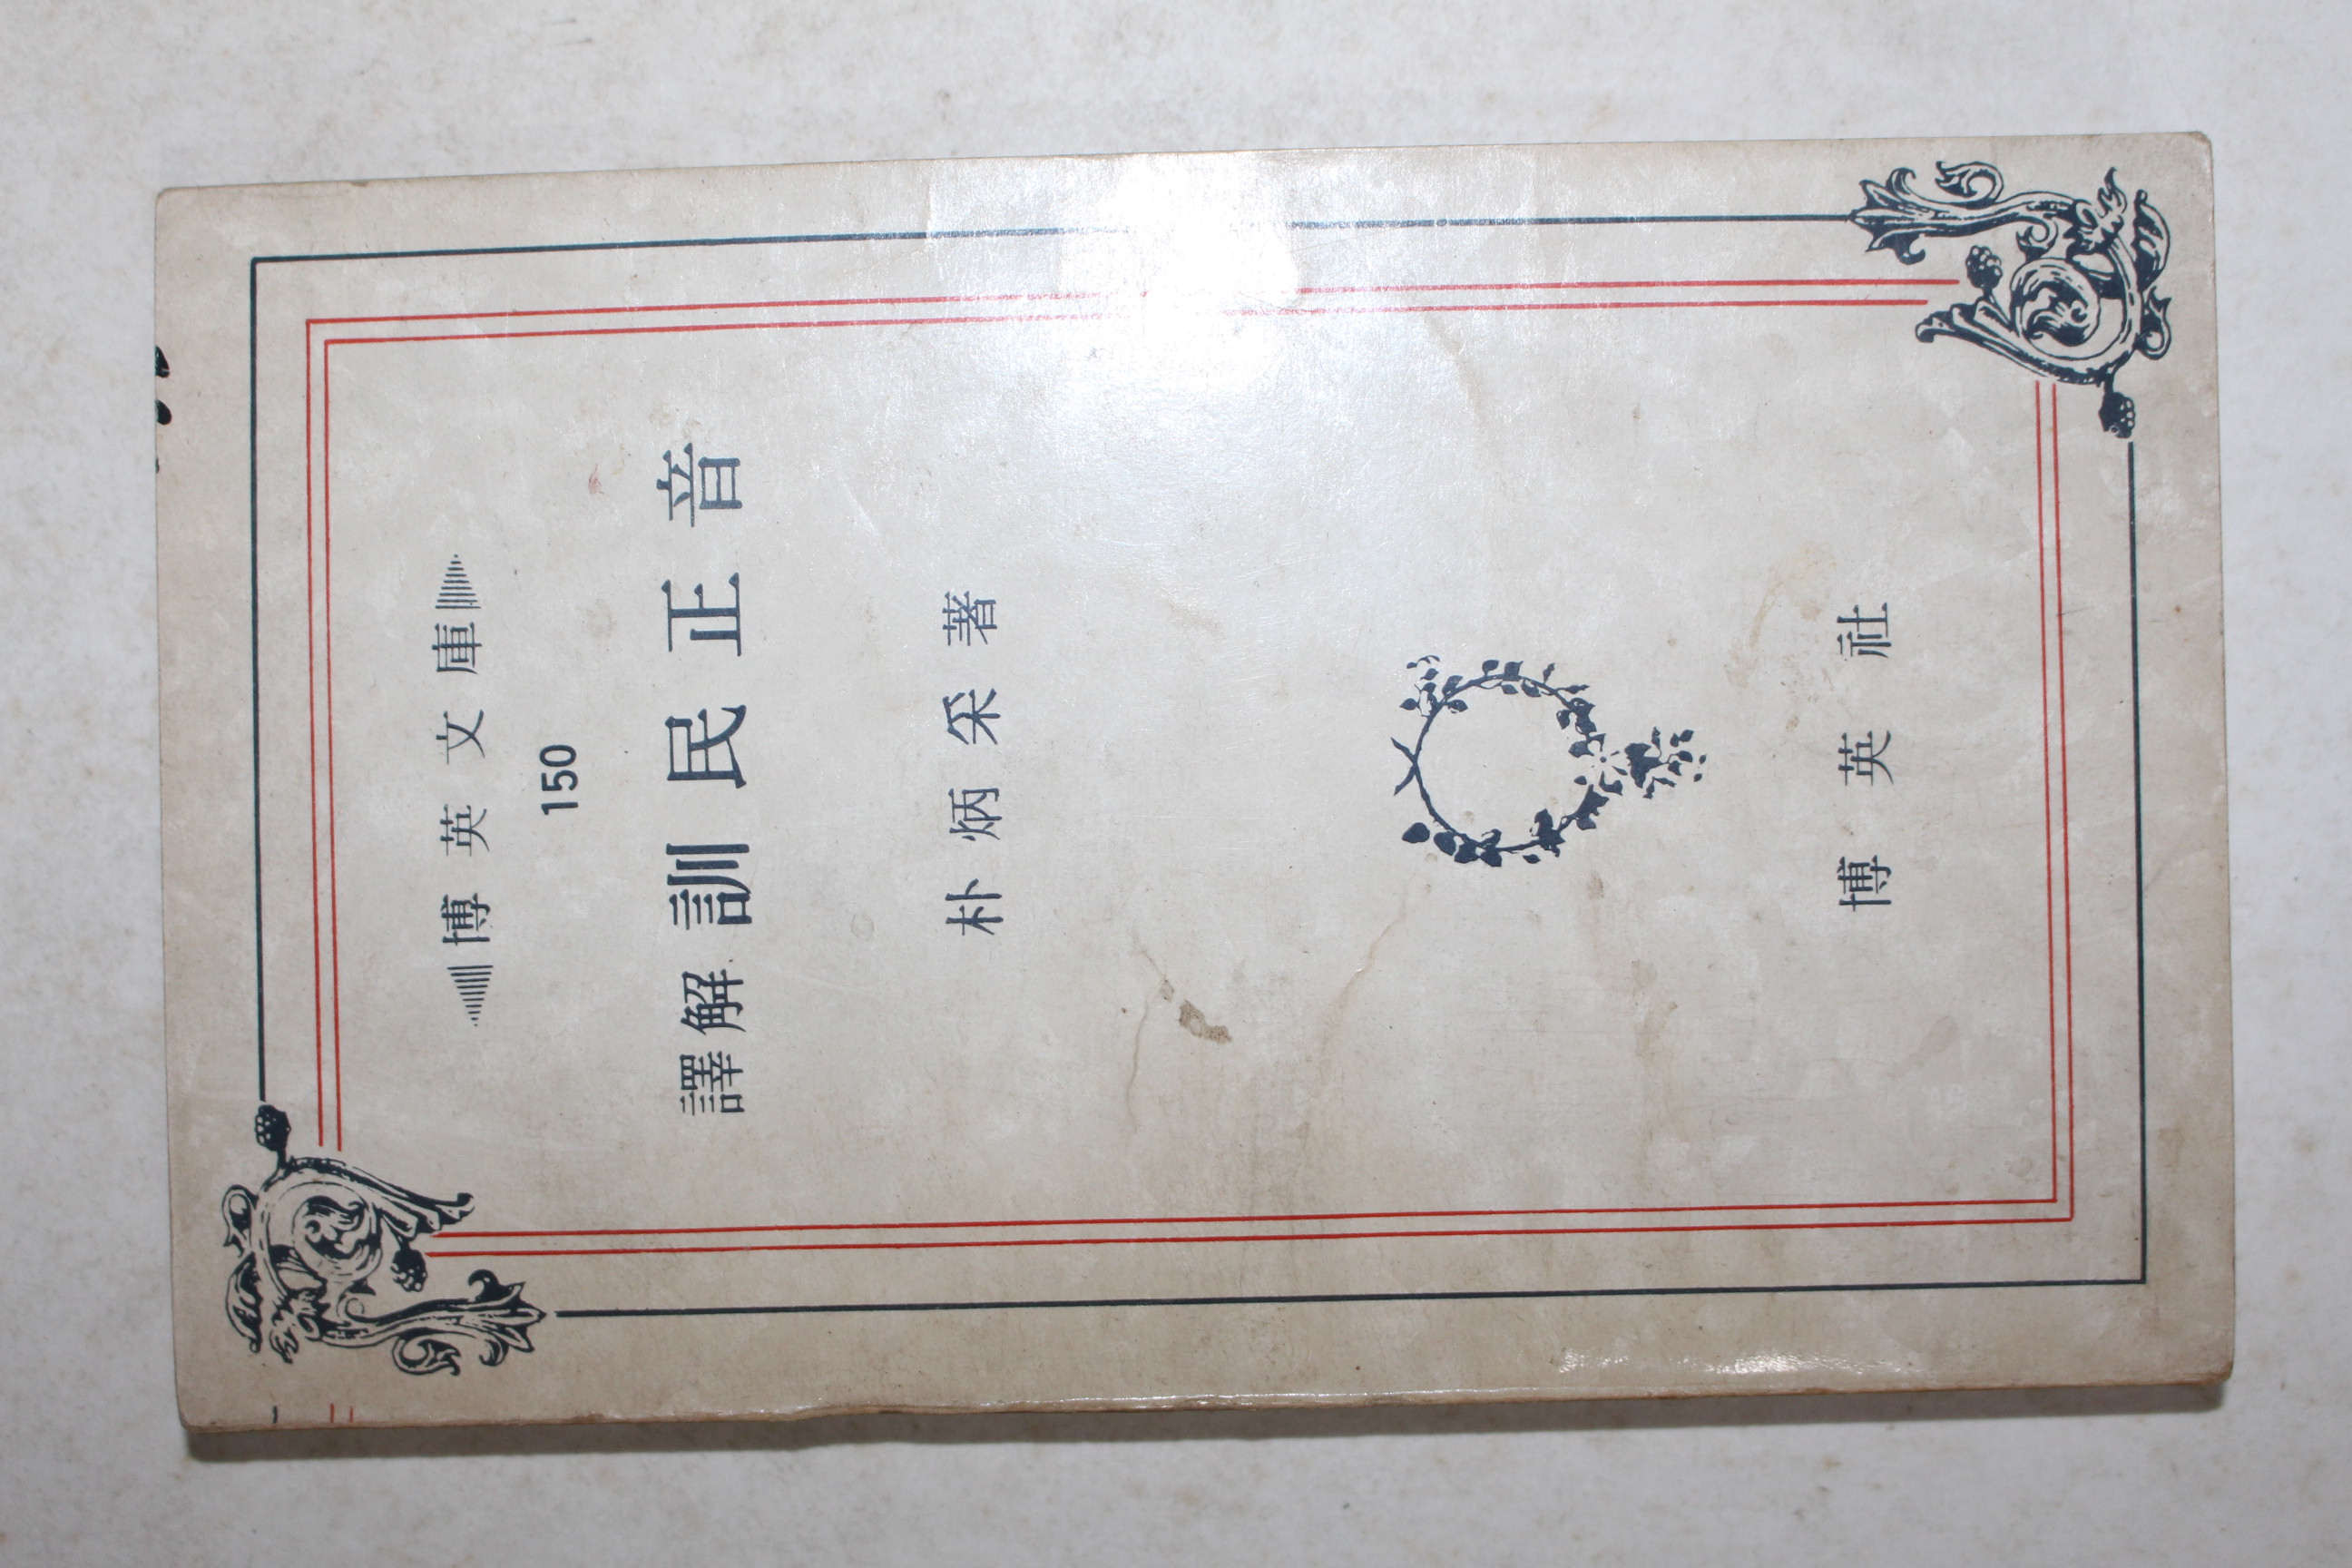 博英文庫
150
譯解 訓民正音
朴炳采 著
博英社